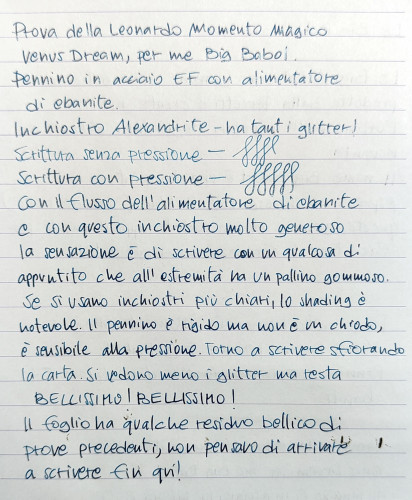 Prova della Leonardo Momento Magico
Venus Dream, per me Big Baboi.
Pennino in acciaio EF con alimentatore
di ebanite.
Inchiostro Alexandrite - ha tanti glitter!
Scrittura senza pressione -
Scrittura con pressione -
Con il flusso dell'alimentatore di ebanite
e con questo inchiostro molto generoso
la sensazione è di scrivere con un qualcosa di
appuntito che all'estremità ha un pallino gommoso.
Se si usano inchiostri più chiari, lo shading è
notevole. Il pennino è rigido ma non è un chiodo,
è sensibile alla pressione. Torno a scrivere sfiorando
la carta. Si vedono meno i glitter ma resta
BELLISSIMO! BELLISSIMO!
Il foglio ha qualche residuo bellico di
prove precedenti, non pensavo di arrivare
a scrivere fin qui!